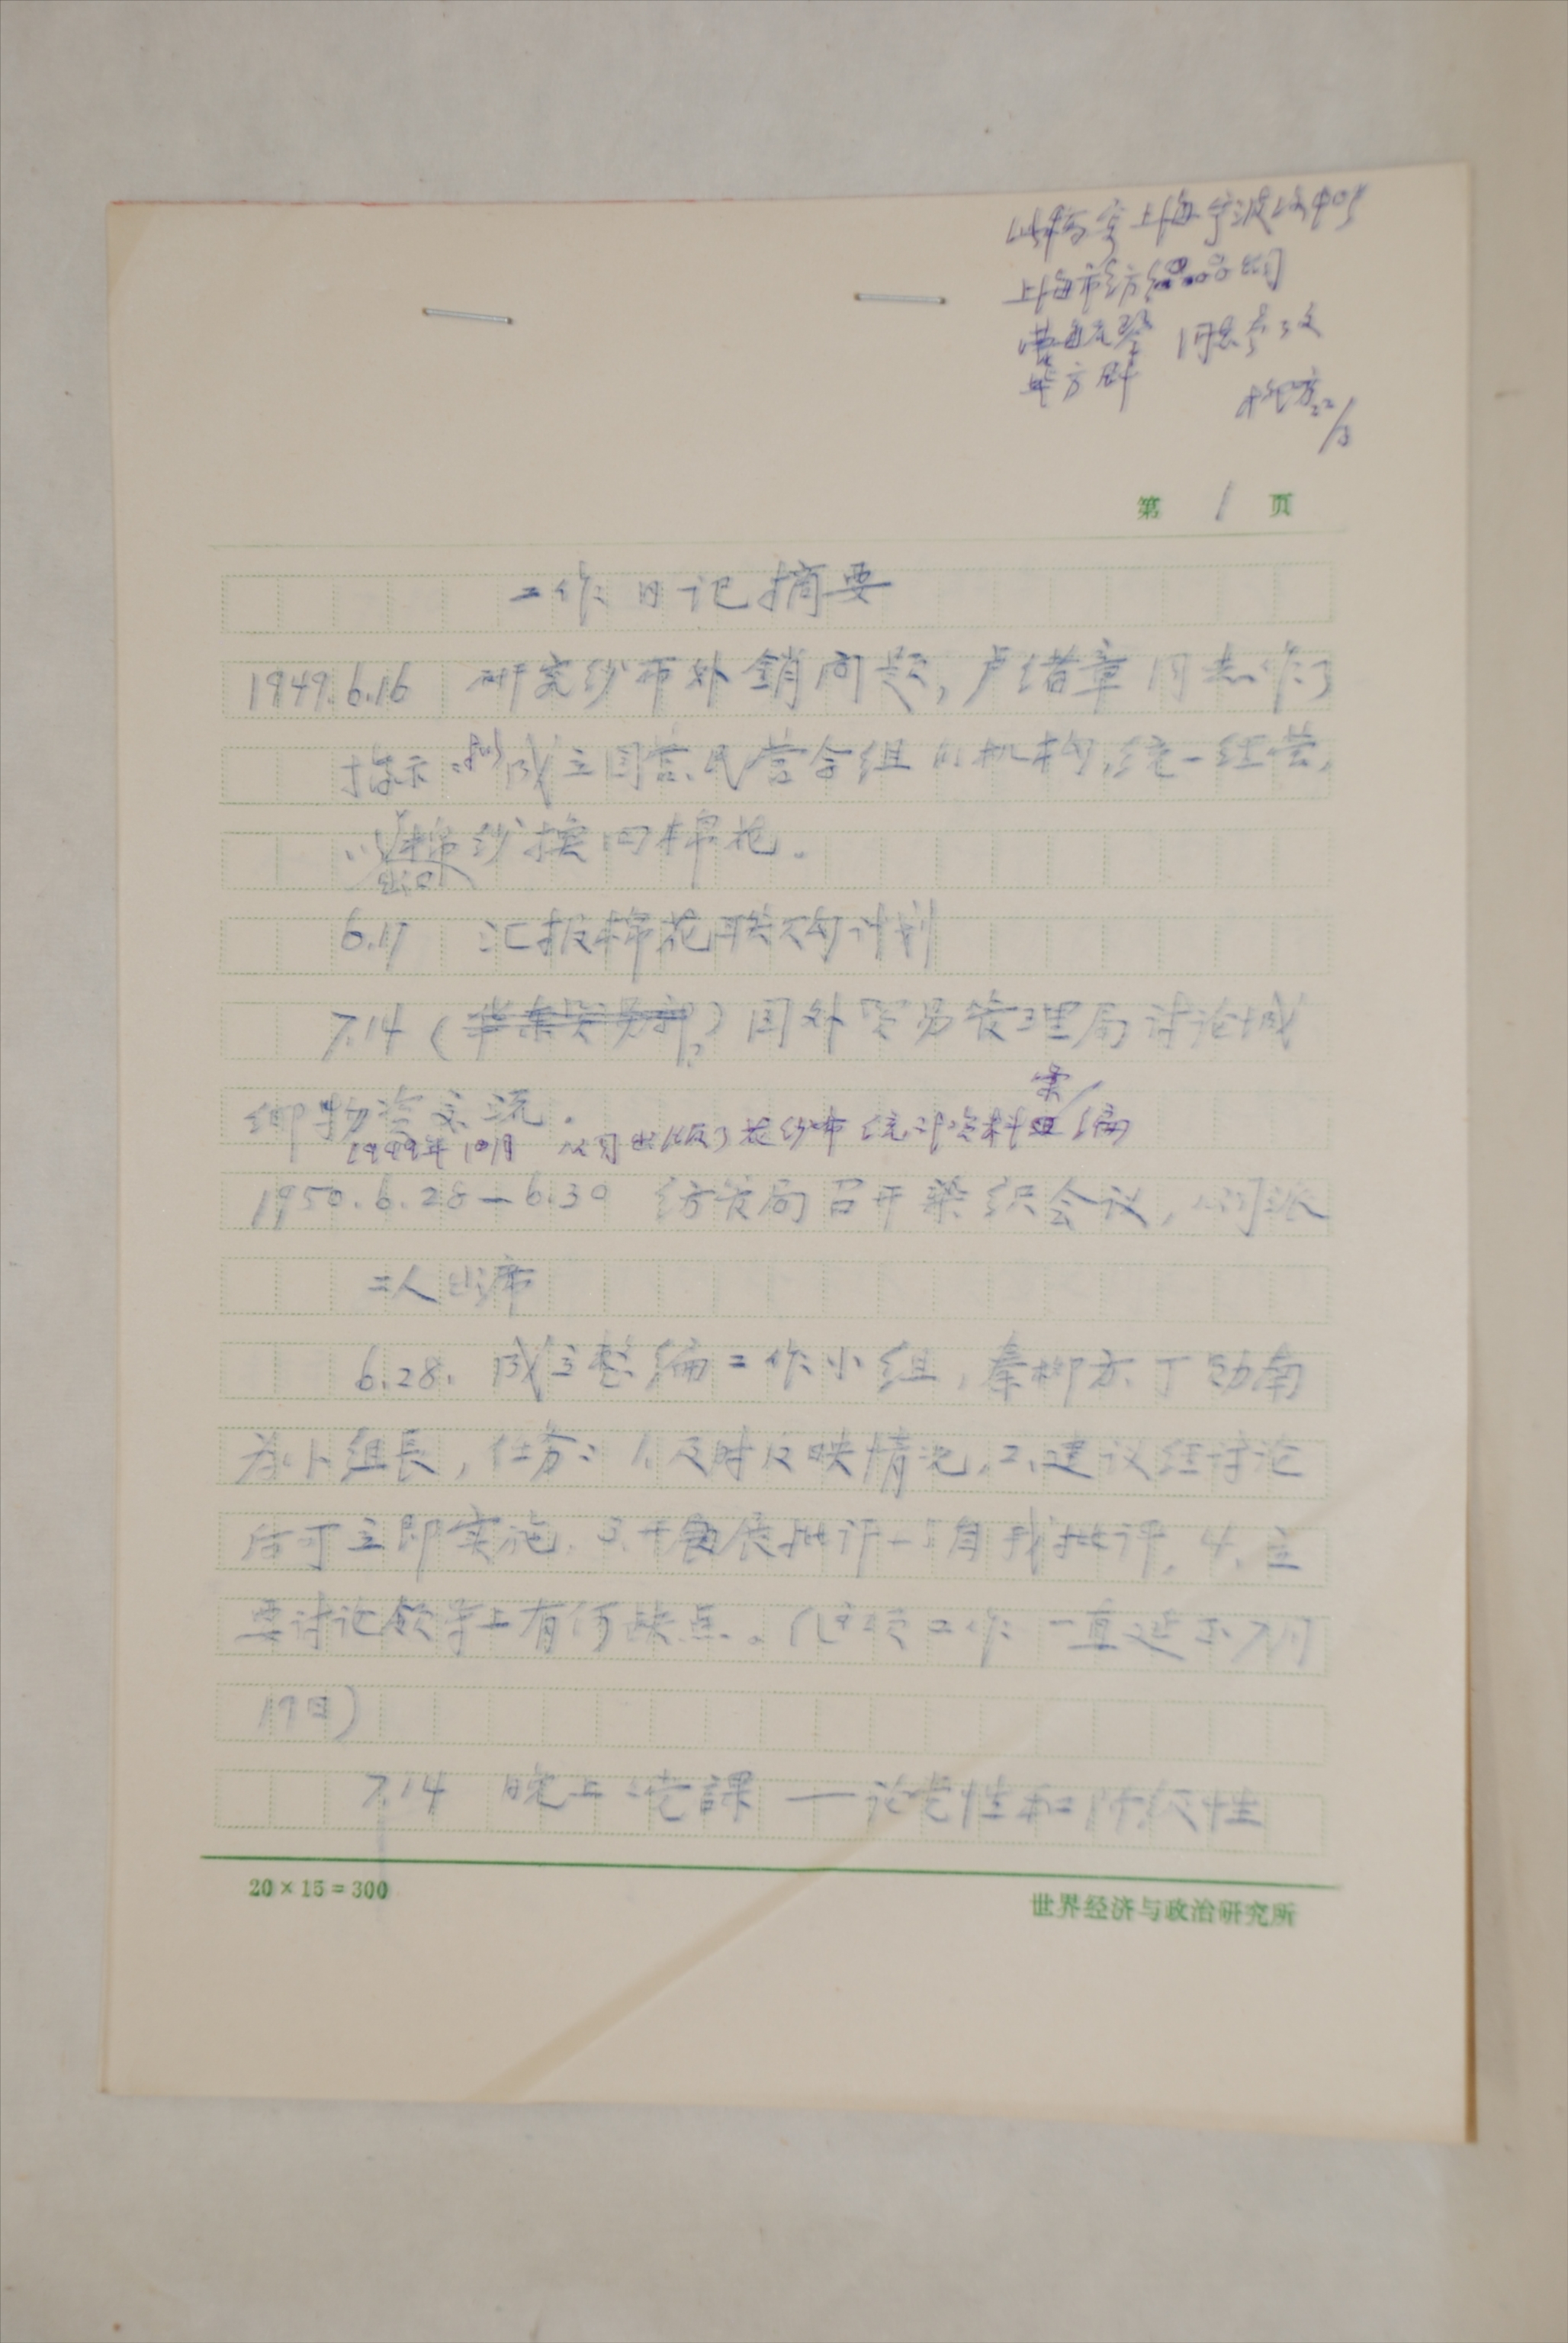 此稿寄上海宁波路中
上海市纺织品公司
同志
22/3
第 1 页
工作日记摘要
1949.6.16 研究纱布外銷问题,卢绪章同志作了
指示:拟成立国营、民营合组的机构,统一经营,
以棉纱换回棉花。
出口
6.17 汇报棉花联购计划
7.14(华东贸易部)国外贸易管理局讨论城
乡物资交流.
1949年10月 公司出版了花纱布统计资料彙编
1950.6.28—6.30 纺管局召开染织会议,公司派
二人出席
6.28. 成立整编工作小组,秦柳方、丁幼南
为小组長,任务:1.及时反映情况,2.建议经讨论
后可立即实施,3.开展批评与自我批评,4.主
要讨论领导上有何缺点。(这项工作一直延至7月
19日)
7.14 晚上党課——论党性和阶级性
20×15=300
世界经济与政治研究所